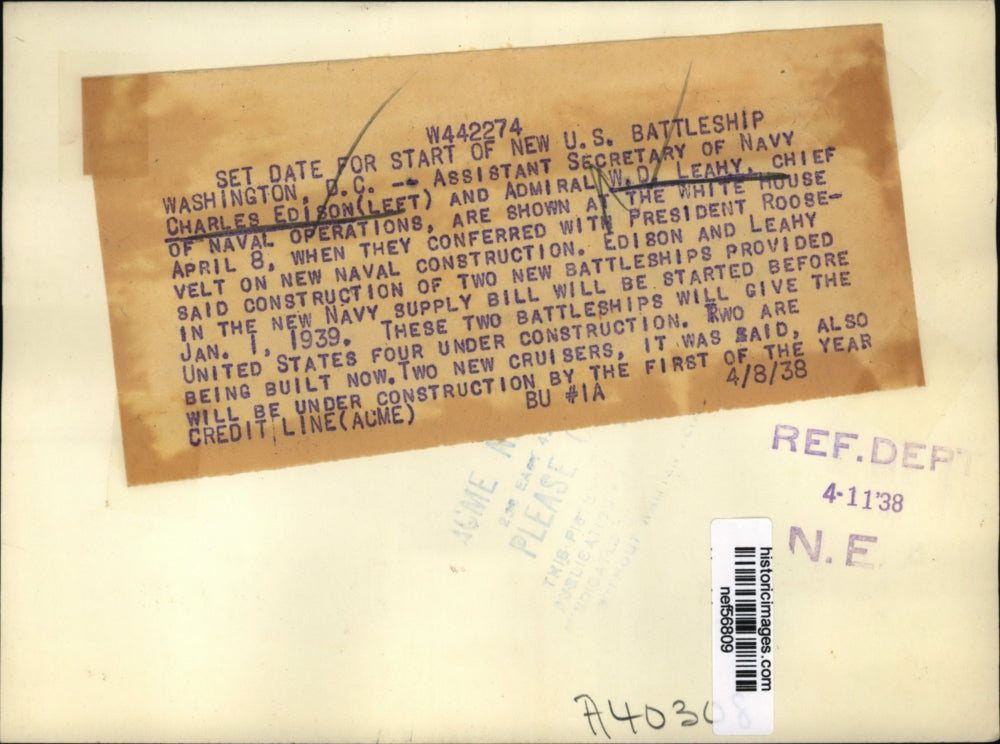 W442274
SET DATE FOR START OF NEW U.S. BATTLESHIP
WASHINGTON, D.C. -- ASSISTANT SECRETARY OF NAVY
CHARLES EDISON(LEFT) AND ADMIRAL W.D. LEAHY, CHIEF
OF NAVAL OPERATIONS, ARE SHOWN AT THE WHITE HOUSE
APRIL 8, WHEN THEY CONFERRED WITH PRESIDENT ROOSE-
VELT ON NEW NAVAL CONSTRUCTION. EDISON AND LEAHY
SAID CONSTRUCTION OF TWO NEW BATTLESHIPS PROVIDED
IN THE NEW NAVY SUPPLY BILL WILL BE STARTED BEFORE
JAN. 1, 1939. THESE TWO BATTLESHIPS WILL GIVE THE
UNITED STATES FOUR UNDER CONSTRUCTION. TWO ARE
BEING BUILT NOW. TWO NEW CRUISERS, IT WAS SAID, ALSO
WILL BE UNDER CONSTRUCTION BY THE FIRST OF THE YEAR
CREDIT LINE(ACME) BU #1A 4/8/38
ACME
PLEASE
THIS PIC
REF.DEPT
4-11'38
N.E
historicimages.com
nef56809
A4030